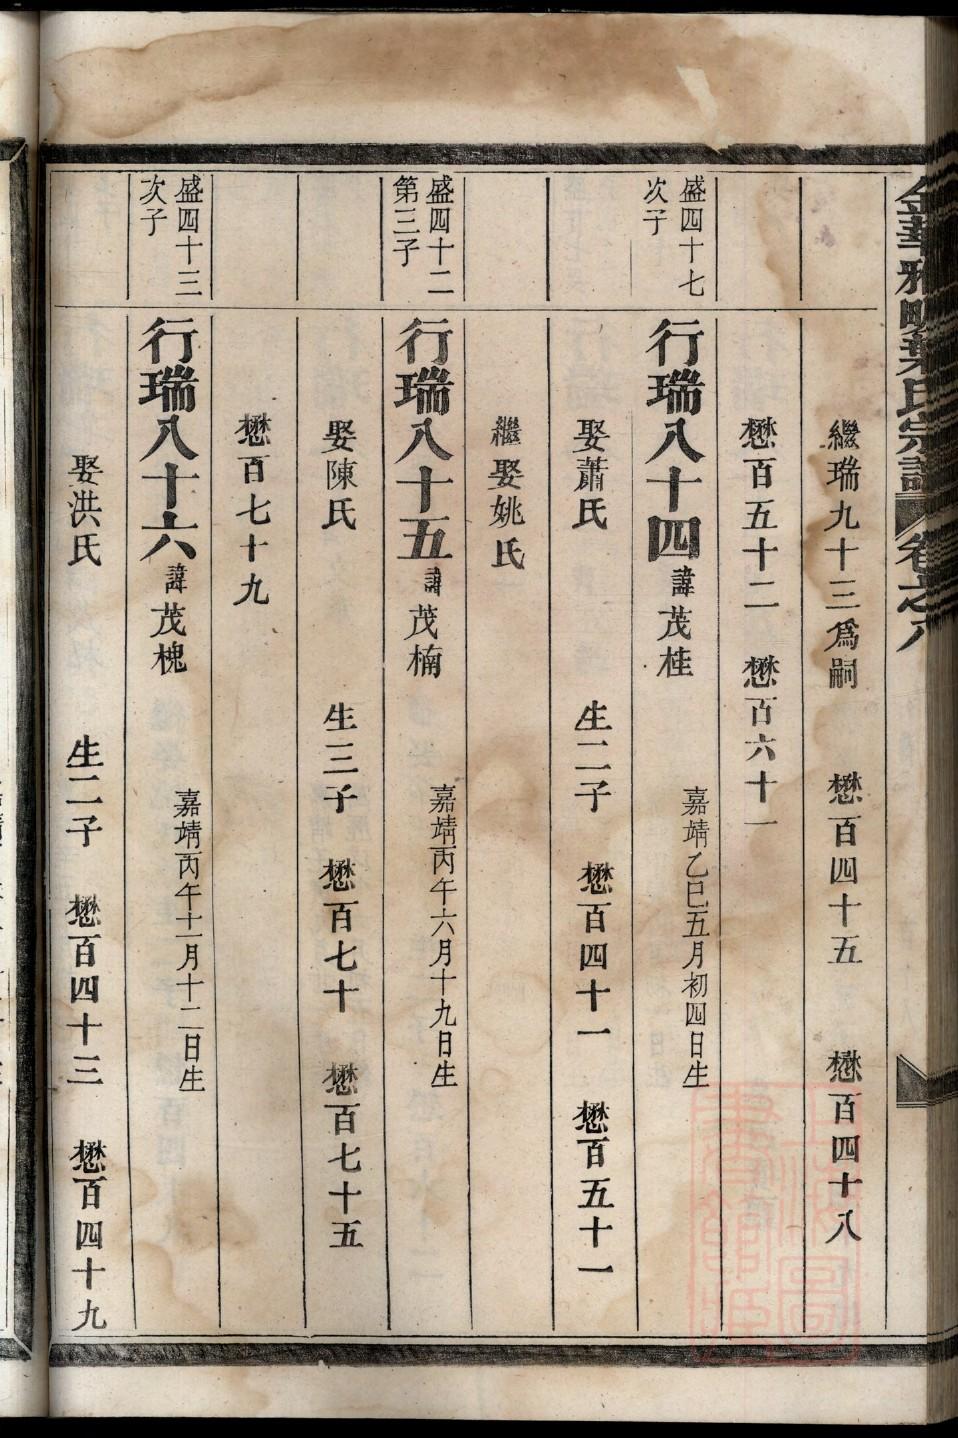 金華雅畈葉氏宗譜 卷之八
繼瑞九十三爲嗣 懋百四十五 懋百四十八
懋百五十二 懋百六十一
盛四十七
次子
行瑞八十四 諱茂桂 嘉靖乙巳五月初四日生
娶蕭氏 生二子 懋百四十一 懋百五十一
繼娶姚氏
盛四十二
第三子
行瑞八十五 諱茂楠 嘉靖丙午六月十九日生
娶陳氏 生三子 懋百七十 懋百七十五
懋百七十九
盛四十三
次子
行瑞八十六 諱茂槐 嘉靖丙午十一月十二日生
娶洪氏 生二子 懋百四十三 懋百四十九
上海圖書館藏